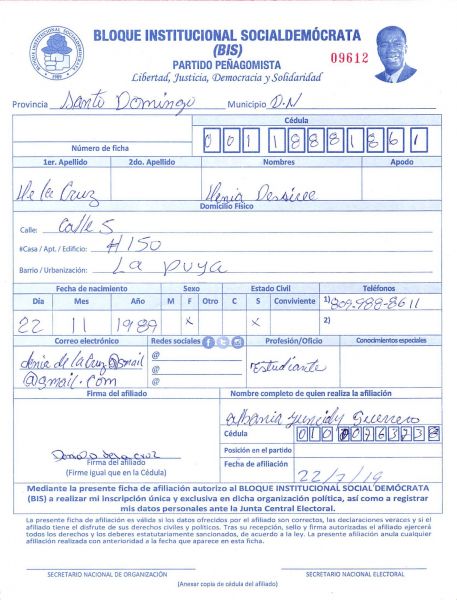 BLOQUE INSTITUCIONAL SOCIALDEMÓCRATA
(BIS)
PARTIDO PEÑAGOMISTA
09612
Libertad, Justicia, Democracia y Solidaridad
Provincia Santo Domingo Municipio D.N
Cédula
Número de ficha 00118881861
1er. Apellido 2do. Apellido Nombres Apodo
De la Cruz Denia Dessiree
Domicilio Físico
Calle: Calle 5
#Casa / Apt. / Edificio: #150
Barrio / Urbanización: La Puya
Fecha de nacimiento Sexo Estado Civil Teléfonos
Día Mes Año M F Otro C S Conviviente 1) 809-988-8611
22 11 1989 X X 2)
Correo electrónico Redes sociales Profesión/Oficio Conocimientos especiales
denia de la Cruz@gmail @ Estudiante
@gmail.com @
@
Firma del afiliado Nombre completo de quien realiza la afiliación
Guerrero
Cédula
Posición en el partido
de la cruz
Firma del afiliado
(Firme igual que en la Cédula)
Fecha de afiliación
22/7/19
Mediante la presente ficha de afiliación autorizo al BLOQUE INSTITUCIONAL SOCIAL DEMÓCRATA
(BIS) a realizar mi inscripción única y exclusiva en dicha organización política, así como a registrar
mis datos personales ante la Junta Central Electoral.
La presente ficha de afiliación es válida si los datos ofrecidos por el afiliado son correctos, las declaraciones veraces y si el
afiliado tiene el disfrute de sus derechos civiles y políticos. Tras su recepción, sello y firma autorizadas el afiliado ejercerá
todos los derechos y los deberes estatutariamente sancionados, de acuerdo a la ley. La presente afiliación anula cualquier
afiliación realizada con anterioridad a la fecha que aparece en esta ficha.
SECRETARIO NACIONAL DE ORGANIZACIÓN SECRETARIO NACIONAL ELECTORAL
(Anexar copia de cédula del afiliado)